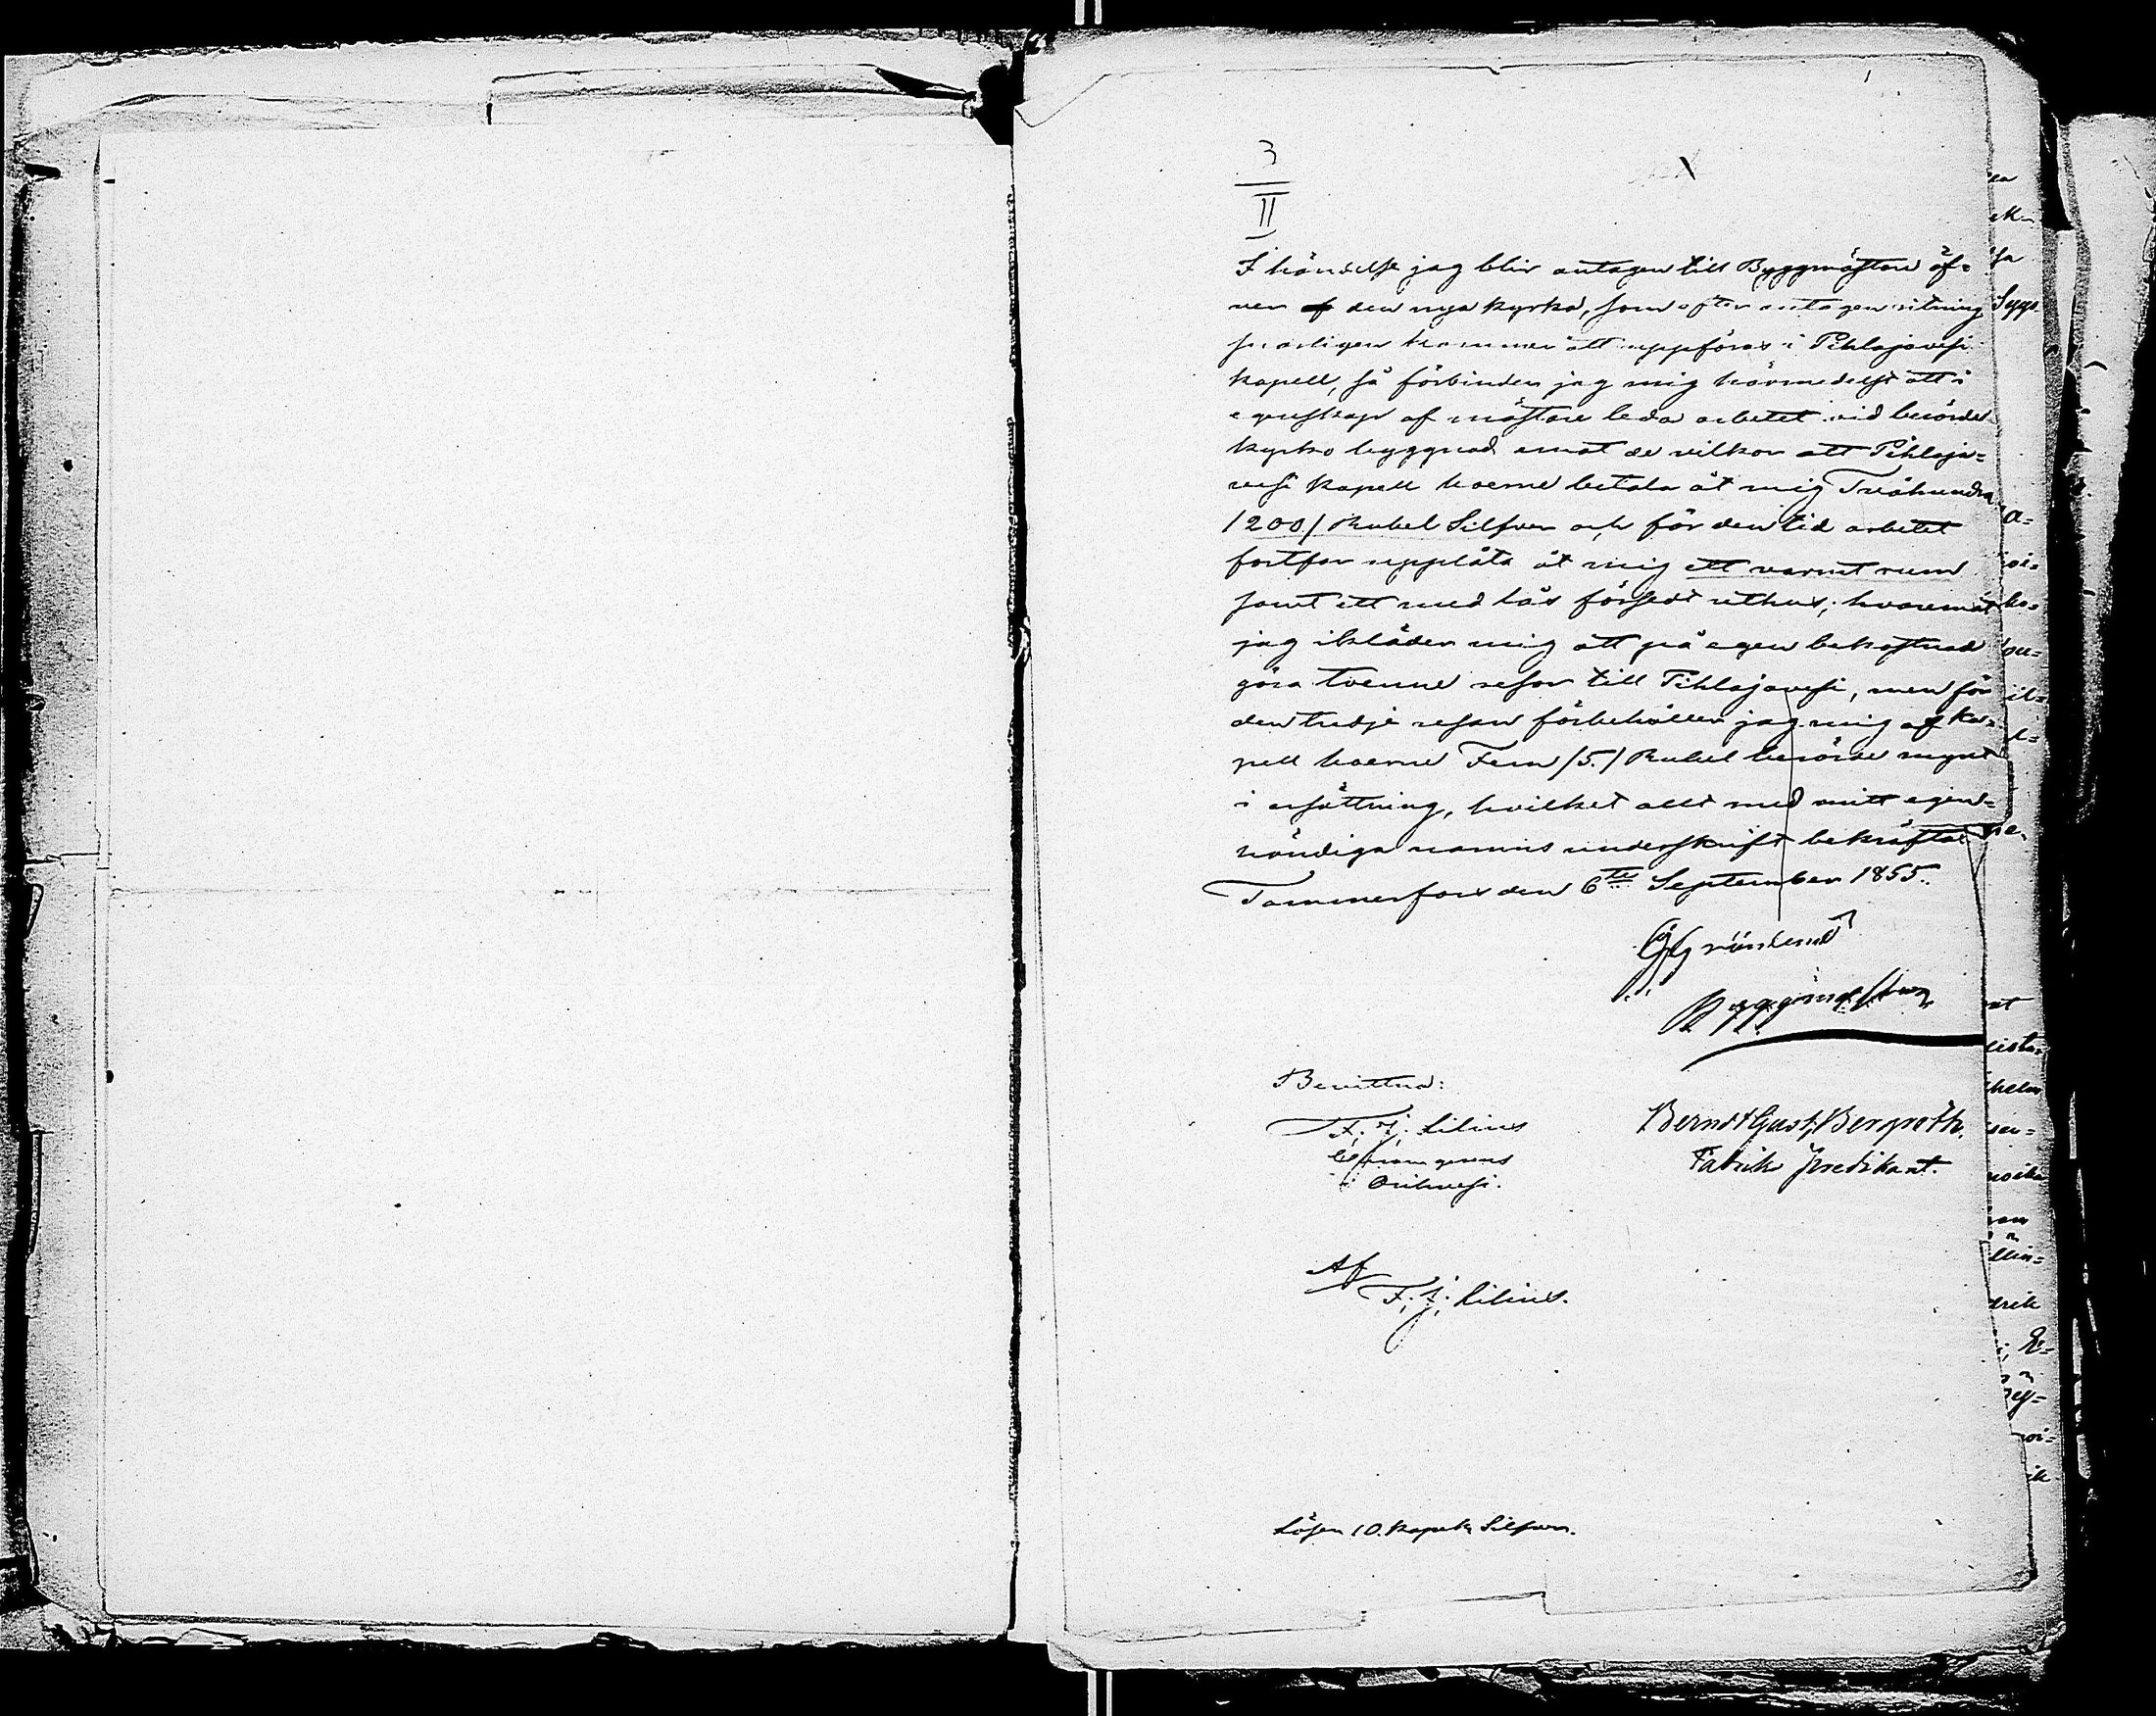 1
3
II
I händelse jag blir antagen till Byggmästare öf-
ver den nya kyrka, som efter antagen ritning
snarligen kommer att uppföras i Pihlajavesi
kapell, så förbinder jag mig härmedelst att i
egenskap af mästare leda arbetet vid berörde
kyrko byggnad emot de vilkor att Pihlaja=
vesi Kapell boerne betala åt mig Tvåhundra
/200/ Rubel Silfver och för den tid arbetet
fortfar upplåta åt mig ett varmt rum
samt ett med lås försedt uthus; hvaremot
jag ikläder mig att på egen bekostnad
göra tvenne resor till Pihlajavesi, men för
den tredje resan förbehåller jag mig af Ka=
pell boerne Fem /5./ Rubel berörde mynt
i ersättning, hvilket allt med mitt egen=
händiga namns underskrift bekräftas
Tammerfors den 6te September 1855.
G Grönlund
Byggmästare
Bevittna:
F. J. Lilius
i Orihvesi.
Berndt Gust. Bergroth.
Fabriks predikant.
Af
F. J. Lilius.
Lösen 10. kopek Silfver.